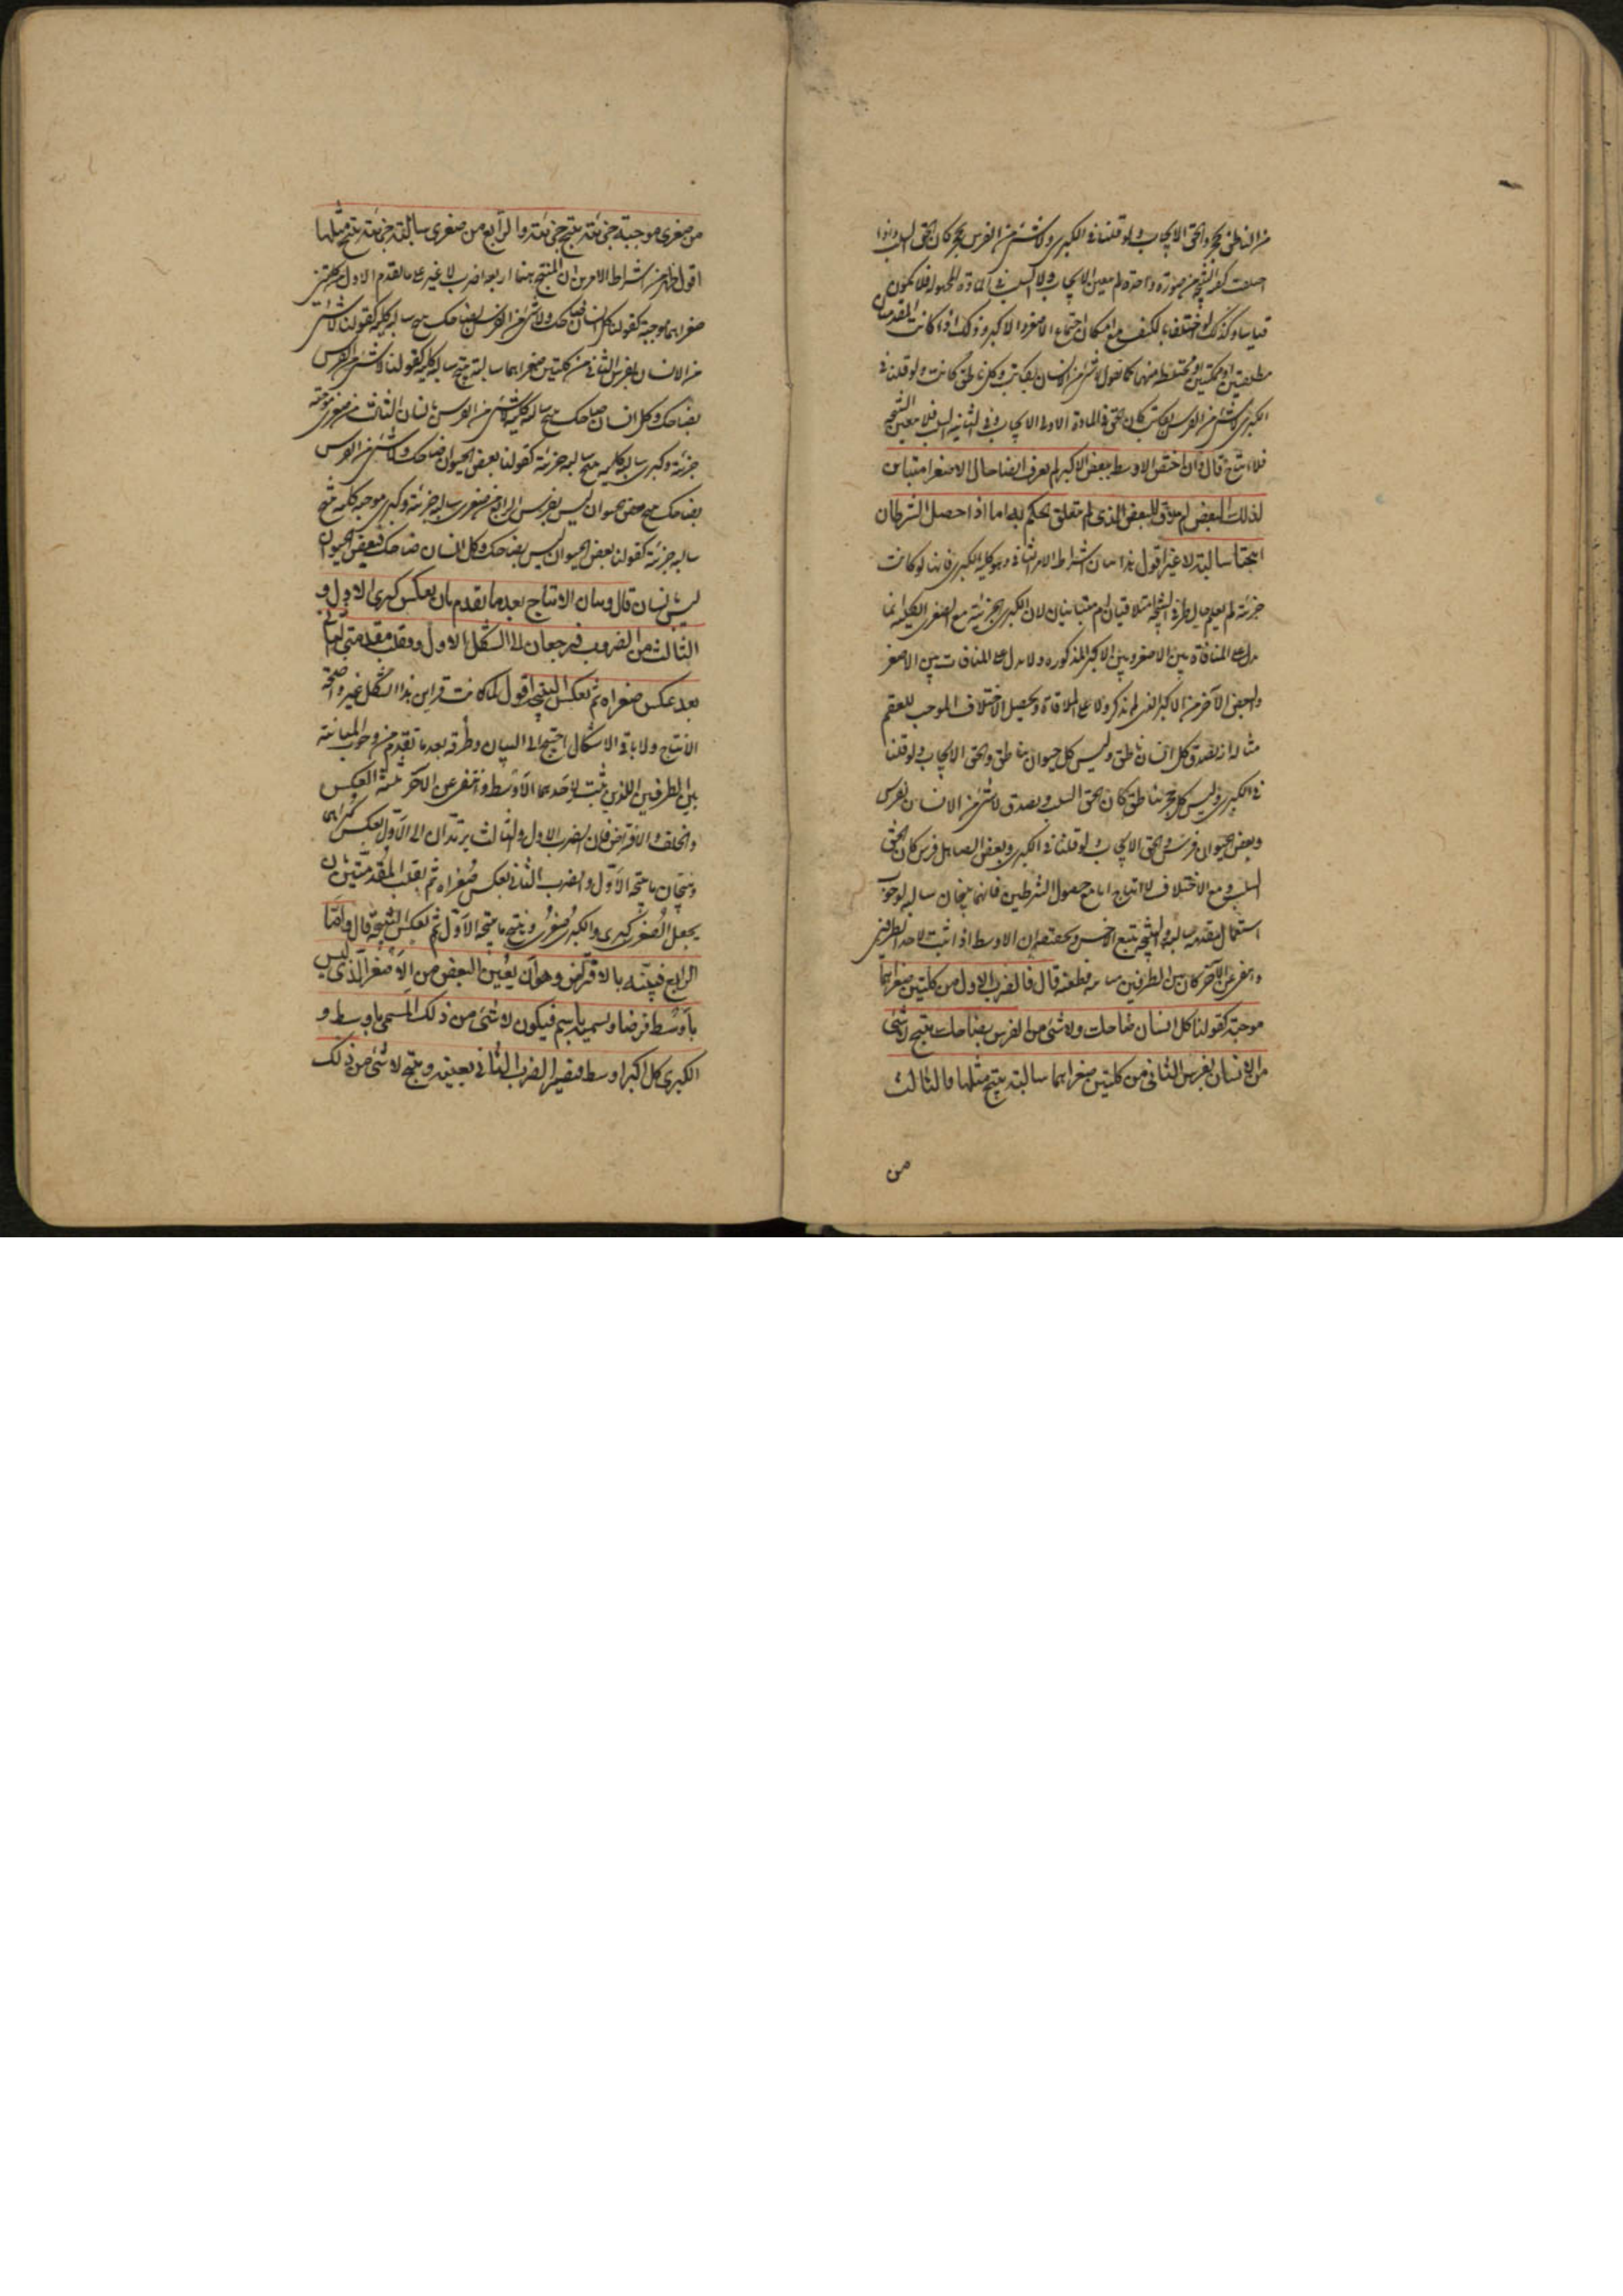 من الناطق بحجر والحق الايجاب ولو قلنا فى الكبرى ولا شئ من الفرس بحجر كان الحق السلب واذا
اختلفت النتيجة من صورة واحدة لم يتعين الايجاب ولا السلب فى المادة المجهولة فلا تكون
قياسا وكذلك لو اختلفتا بالكيف مع امكان اجتماع الاصغر والاكبر وذلك اذا كانت المقدمتان
مطلقتين او ممكنتين او مختلطة منهما كما نقول لا شئ من الانسان بكاتب وكل ناطق كاتب ولو قلنا فى
الكبرى لا شئ من الفرس بكاتب كان الحق فى المادة الاولى الايجاب وفى الثانية السلب فلا يتعين النتيجة
فلا انتاج قال وان اختص الاوسط ببعض الاكبر لم يعرف ايضا حال الاصغر امتباين
لذلك البعض ام موافق للبعض الذى لم يتعلق الحكم به اما اذا حصل الشرطان
انتجتا سالبة لا غير اقول هذا بيان اشتراط الامر الثانى وهو كلية الكبرى فانها لو كانت
جزئية لم يعلم حال طرفى النتيجة امتلاقيان ام متباينان لان الكبرى الجزئية مع الصغرى الكلية انما
يدل على المنافاة بين الاصغر وبين الاكبر المذكورة ولا يدل على المنافات بين الاصغر
والبعض الآخر من الاكبر الذى لم يذكر ولا على الملاقاة ويحصل الاختلاف الموجب للعقم
مثاله انه يصدق كل انسان ناطق وليس كل حيوان بناطق والحق الايجاب ولو قلنا
فى الكبرى وليس كل حجر بناطق كان الحق السلب ويصدق لا شئ من الانسان بفرس
وبعض الحيوان فرس والحق الايجاب ولو قلنا فى الكبرى وبعض الصاهل فرس كان الحق
السلب ومع الاختلاف لا انتاج اما مع حصول الشرطين فانهما ينتجان سالبة لوجوب
استعمال مقدمة سالبة والنتيجة يتبع الاخس ولحقيقة ان الاوسط اذا ثبت لاحد الطرفين
وانتفى عن الآخر كان بين الطرفين مباينة قطعية قال فالضرب الاول من كليتين صغراهما
موجبة كقولنا كل انسان ضاحك ولا شئ من الفرس بضاحك ينتج لا شئ
من الانسان بفرس الثانى من كليتين صغراهما سالبة ينتج مثلها والثالث
من
من صغرى موجبة جزئية ينتج جزئية والرابع من صغرى سالبة جزئية ينتج مثلها
اقول ظاهر من اشتراط الامرين ان المنتج ههنا اربعة اضرب لا غير على ما تقدم الاول من كليتين
صغراهما موجبة كقولنا كل انسان ضاحك ولا شئ من الفرس بضاحك ينتج سالبة كلية كقولنا لا شئ
من الانسان بفرس الثانى من كليتين صغراهما سالبة ينتج سالبة كلية كقولنا لا شئ من الفرس
بضاحك وكل انسان ضاحك ينتج سالبة كلية لا شئ من الفرس بانسان الثالث من صغرى موجبة
جزئية وكبرى سالبة كلية ينتج سالبة جزئية كقولنا بعض الحيوان ضاحك ولا شئ من الفرس
بضاحك ينتج بعض الحيوان ليس بفرس الرابع من صغرى سالبة جزئية وكبرى موجبة كلية ينتج
سالبة جزئية كقولنا بعض الحيوان ليس بضاحك وكل انسان ضاحك فبعض الحيوان
ليس بانسان قال وبيان الانتاج بعد ما تقدم بان يعكس كبرى الاول و
الثالث من الضروب فيرجعان الى الشكل الاول ويقلب مقدمتى الثانى
بعد عكس صغراه ثم يعكس النتيجة اقول لما كانت قراين هذا الشكل غير واضحة
الانتاج ولا باقى الاشكال احتيج الى البيان وطرقه بعد ما تقدم من وجوب المباينة
بين الطرفين اللذين يثبت لاحدهما الاوسط وانتفى عن الآخر ثلثة العكس
والخلف والافتراض فان الضرب الاول والثالث يرتدان الى الاول بعكس كبراهما
وينتجان ما ينتجه الاول والضرب الثانى يعكس صغراه ثم يقلب المقدمتين بان
يجعل الصغرى كبرى والكبرى صغرى وينتج ما ينتجه الاول ثم يعكس النتيجة قال واما
الرابع فنبينه بالافتراض وهو ان يعين البعض من الاصغر الذى ليس
باوسط فرضا ونسميه باسم فيكون لا شئ من ذلك المسمى باوسط و
الكبرى كل اكبر اوسط فيصير الضرب الثانى بعينه وينتج لا شئ من ذلك